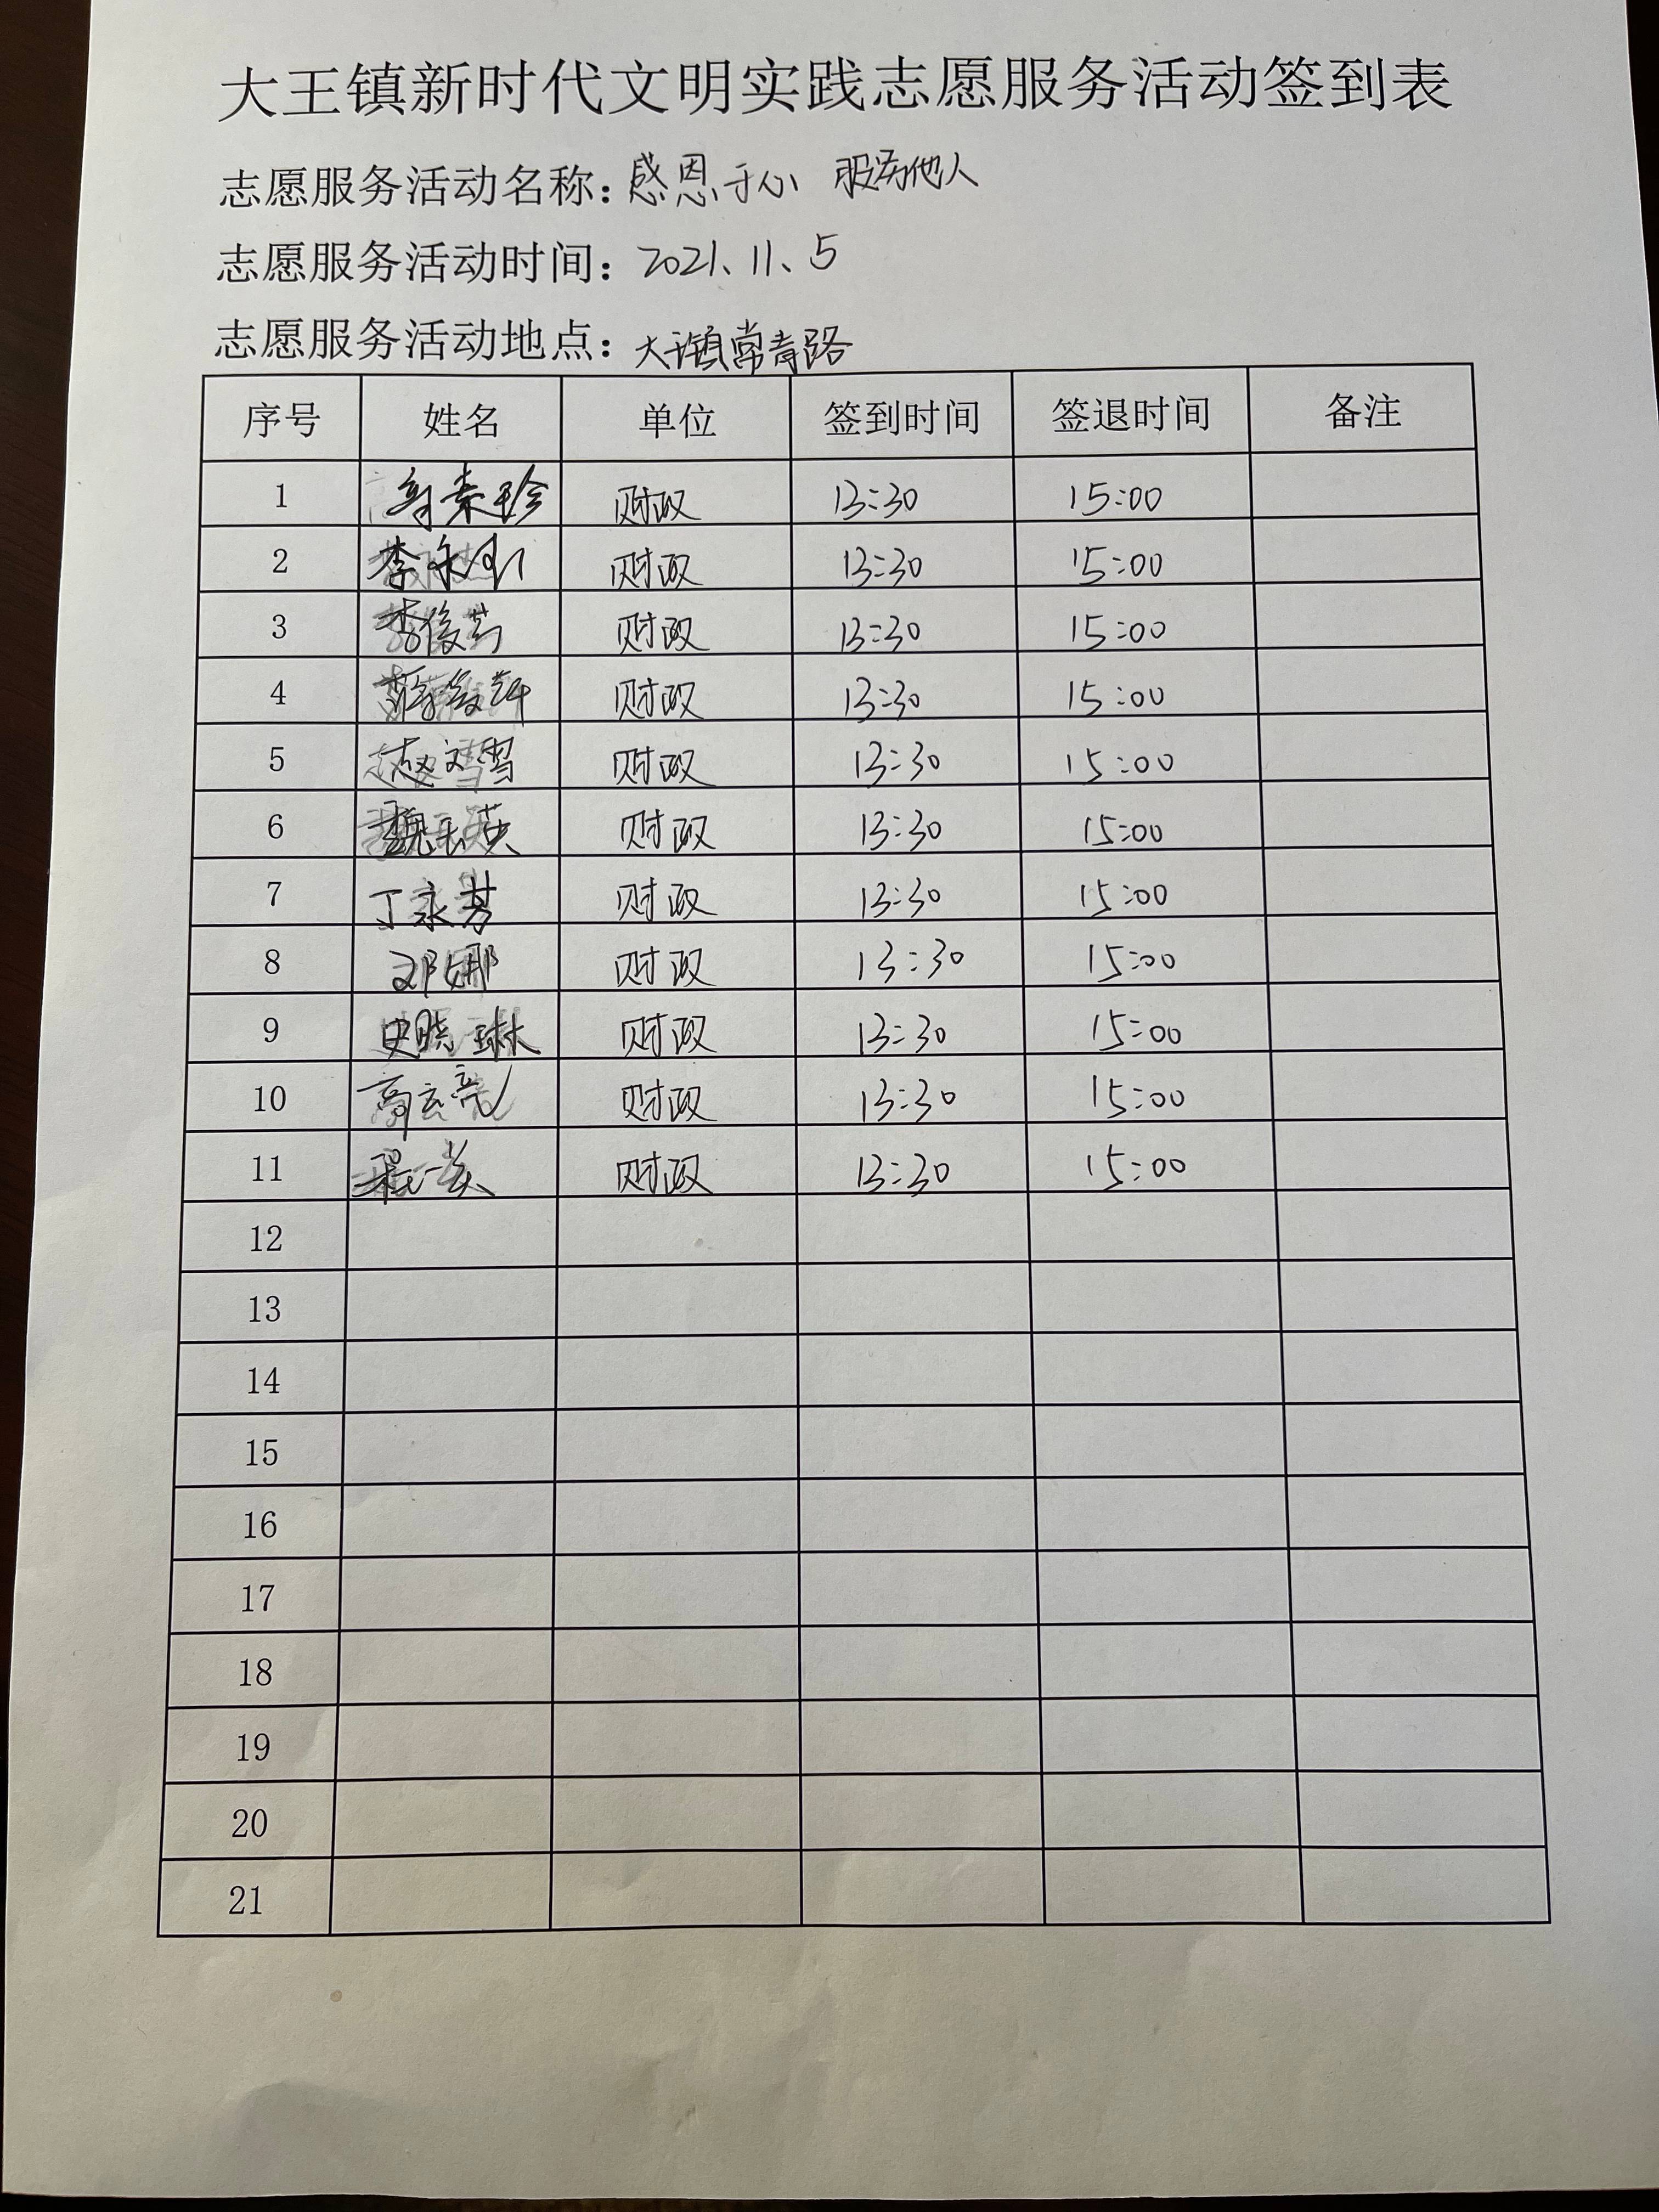 大王镇新时代文明实践志愿服务活动签到表
志愿服务活动名称：感恩于心 服务他人
志愿服务活动时间：2021、11、5
志愿服务活动地点：大王镇常青路
序号 姓名 单位 签到时间 签退时间 备注
1 素珍 财政 13:30 15:00
2 李永 财政 13:30 15:00
3 李俊芳 财政 13:30 15:00
4 财政 13:30 15:00
5 赵文雪 财政 13:30 15:00
6 魏玉英 财政 13:30 15:00
7 丁永芳 财政 13:30 15:00
8 邓娜 财政 13:30 15:00
9 史晓琳 财政 13:30 15:00
10 高亮 财政 13:30 15:00
11 程一 财政 13:30 15:00
12
13
14
15
16
17
18
19
20
21